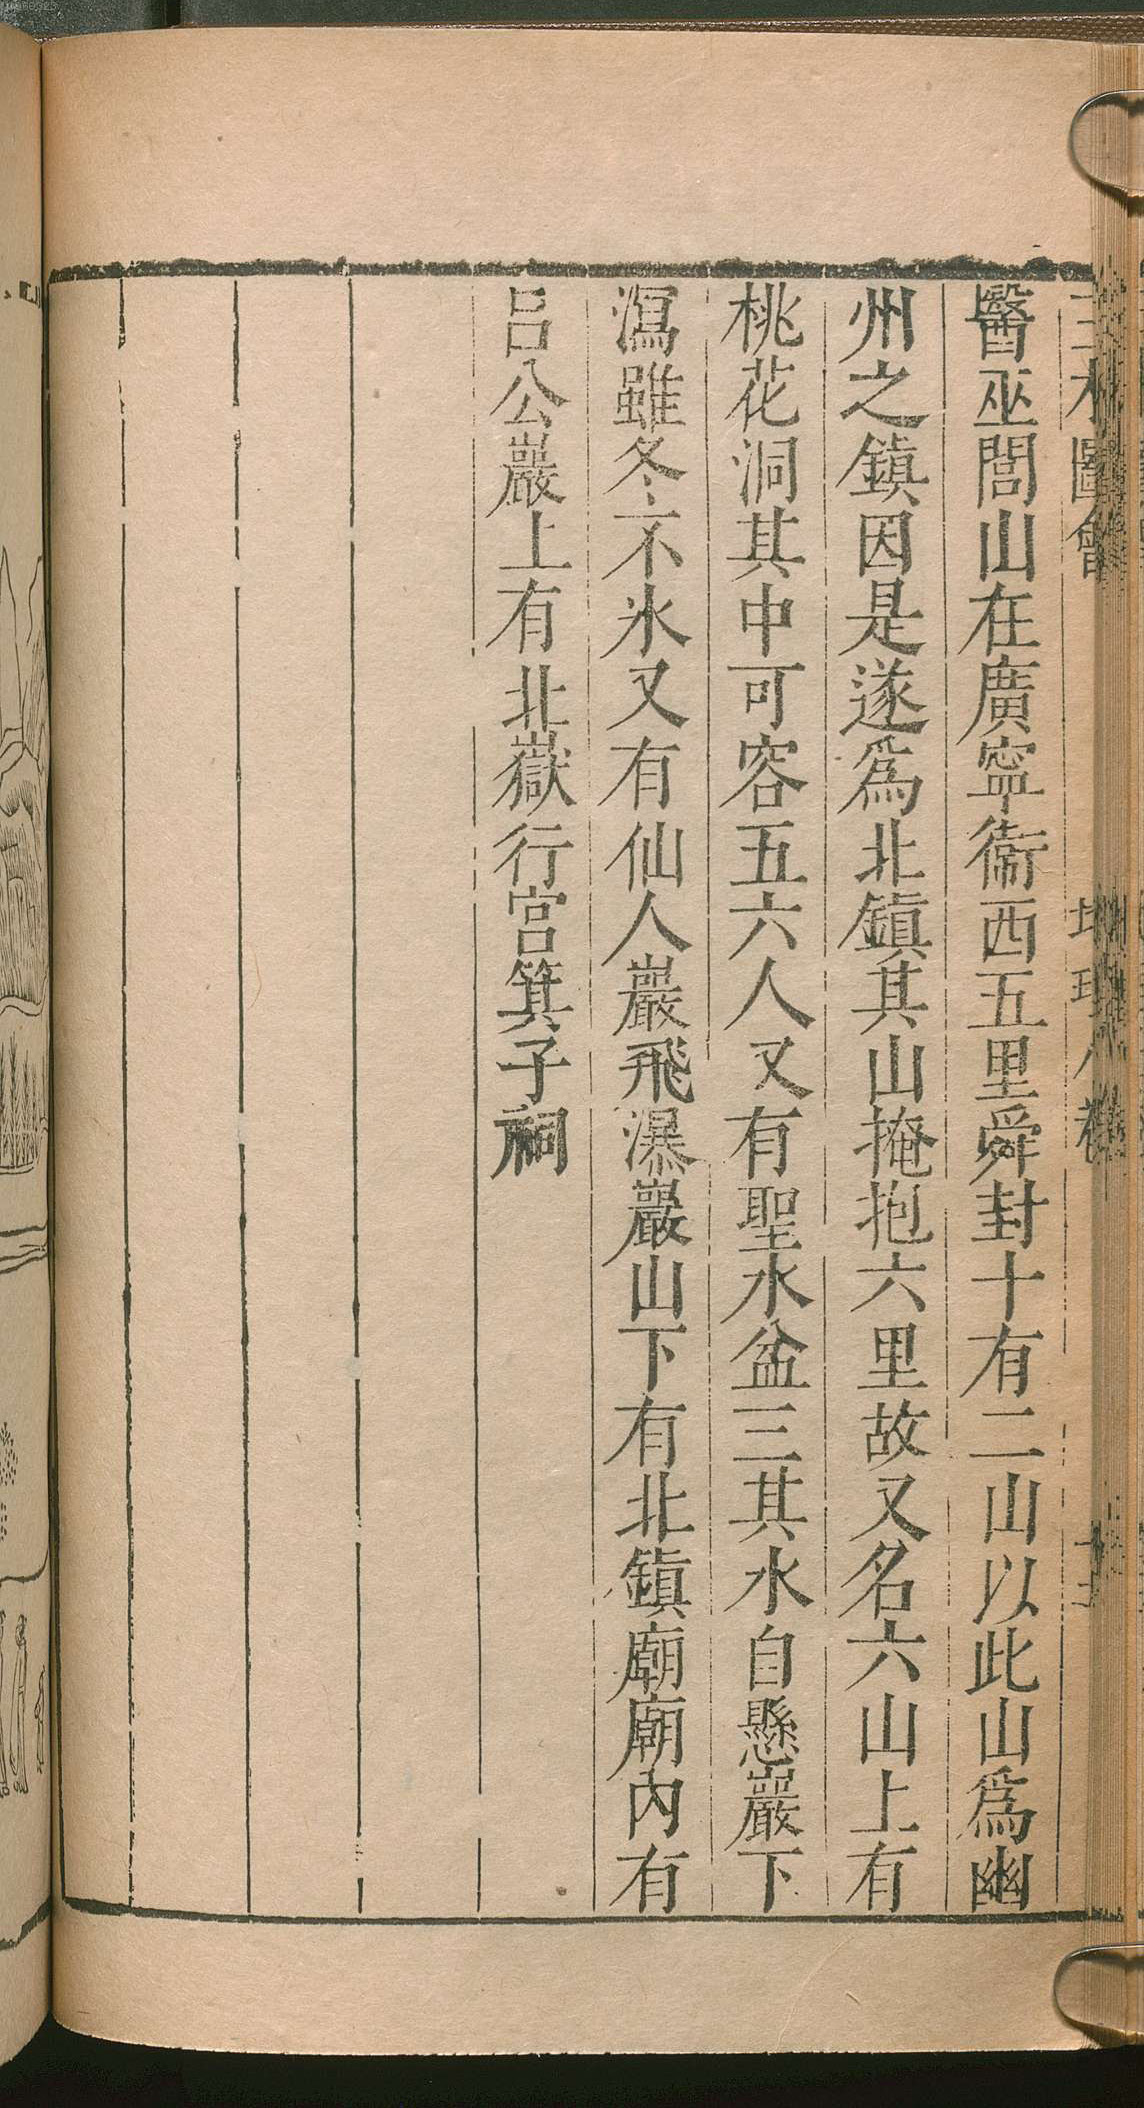 三才圖會 地理八卷
醫巫閭山在廣寧衞西五里舜封十有二山以此山爲幽
州之鎮因是遂爲北鎮其山掩抱六里故又名六山上有
桃花洞其中可容五六人又有聖水盆三其水自懸巖下
瀉雖冬不氷又有仙人巖飛瀑巖山下有北鎮廟廟內有
呂公巖上有北嶽行宮箕子祠